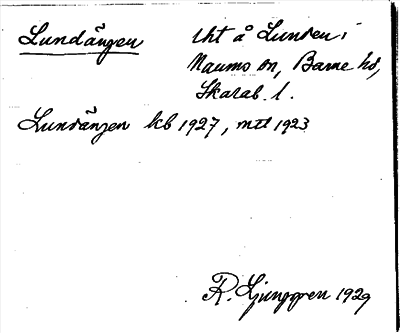 Lundängen
Uht å Lunden i
Naums sn, Barne hd,
Skarab. l.
Lundängen kb 1927, mtl 1923
R. Ljunggren 1929